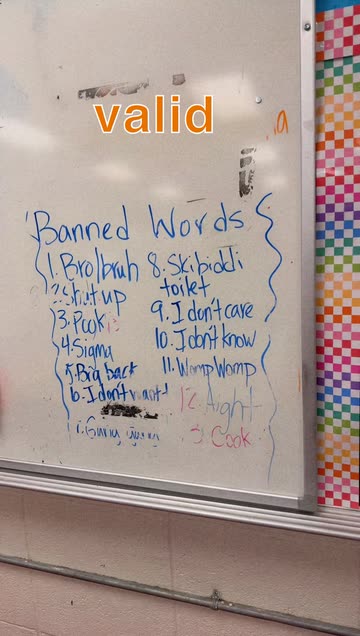 valid
Banned Words
1. Bro/bruh
2. Shut up
3. Pook
4. Sigma
5. Big back
6. I don't want
8. Skibiddi
toilet
9. I don't care
10. I don't know
11. Womp Womp
12. Aight
Cook